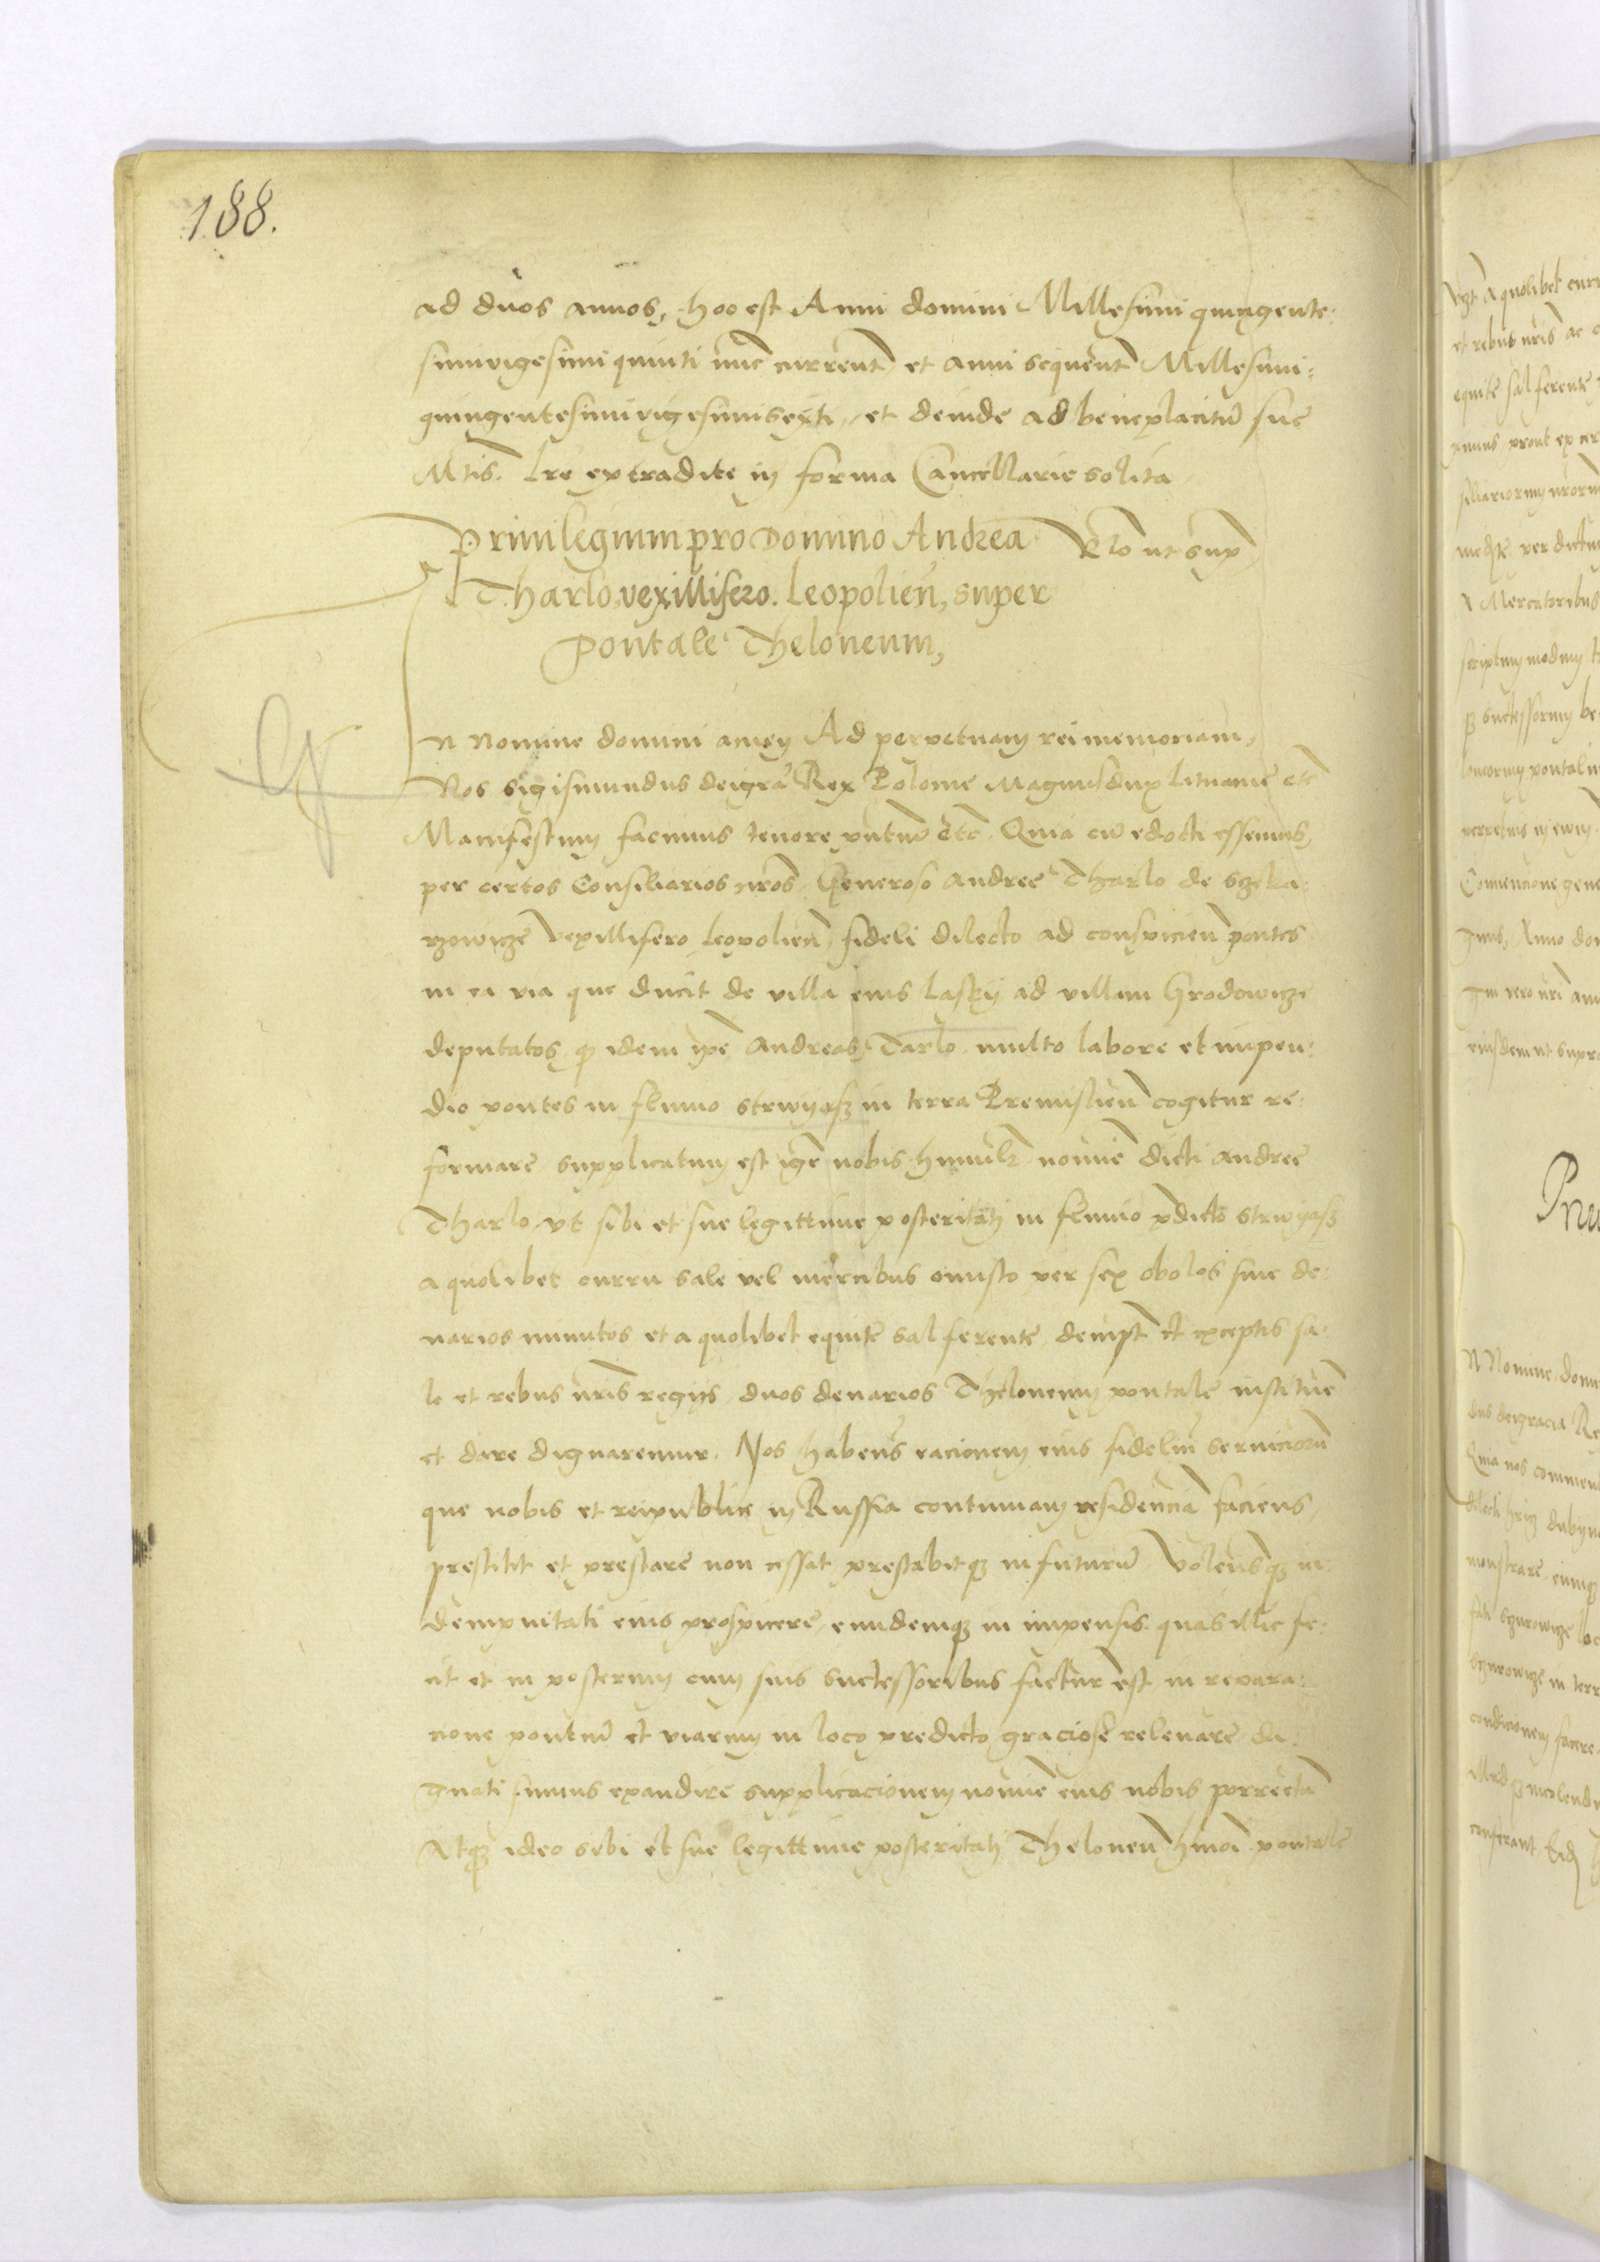 188.
ad duos annos, hoc est Anni domini Millesimi quingente:
simi vigesimi quinti nuc current et anni sequent Millesimi:
quingentesimi vigesimi sexti, et deinde ad beneplacitu sue
Mtis. Lre extradite in forma Cancellarie solita
Privilegium pro Domino Andrea Rlo ut supra
Tharlo, vexillifero. Leopolien, super
pontale Theloneum,
In Nomine domini amen Ad perpetuam rei memoriam,
Nos Sigismundus dei gra Rex Polonie Magnus dux Lituanie etc
Manifestum facimus tenore pntiu etc. Quia cu edocti essemus,
per certos Consiliarios nros, Generoso Andree Tharlo de Szcka:
rzowicze Vexillifero Leopolien, fideli dilecto ad conspicien pontes
in ea via que ducit de villa eius Lasky ad villam Hrodowicze
deputatos, q idem ipe Andreas Tarlo multo labore et impen:
dio pontes in fluvio Strwyasz in terra Premislien cogitur re:
formare, supplicatum est igr nobis humilr nomine dicti Andree
Tharlo, ut sibi et sue legittime posteritati in fluvio pdicto Strwyasz
a quolibet curru sale vel mercibus onusto per sex obolos sive de:
narios minutos et a quolibet equite sal ferente dempt et exceptis sa:
le et rebus nris regys, duos denarios Theloneum pontale instituere
et dare dignaremur. Nos habens racionem eius fidelium serviciorum
que nobis et reipublice in Russia continuam residencia faciens,
prestitit et prestare non cessat prestabitq in futuru. Volensq in:
dempnitati eius prospicere, eundemq in impensis quas illic fe:
cit et in posterum cum suis successoribus factur est in repara:
cione pontiu et viarum in loco predicto, graciose relevare di:
gnati sumus exaudire supplicacionem nomine eius nobis porrecta
Atq ideo sibi et sue legittime posteritati Theloneu hmoi pontale